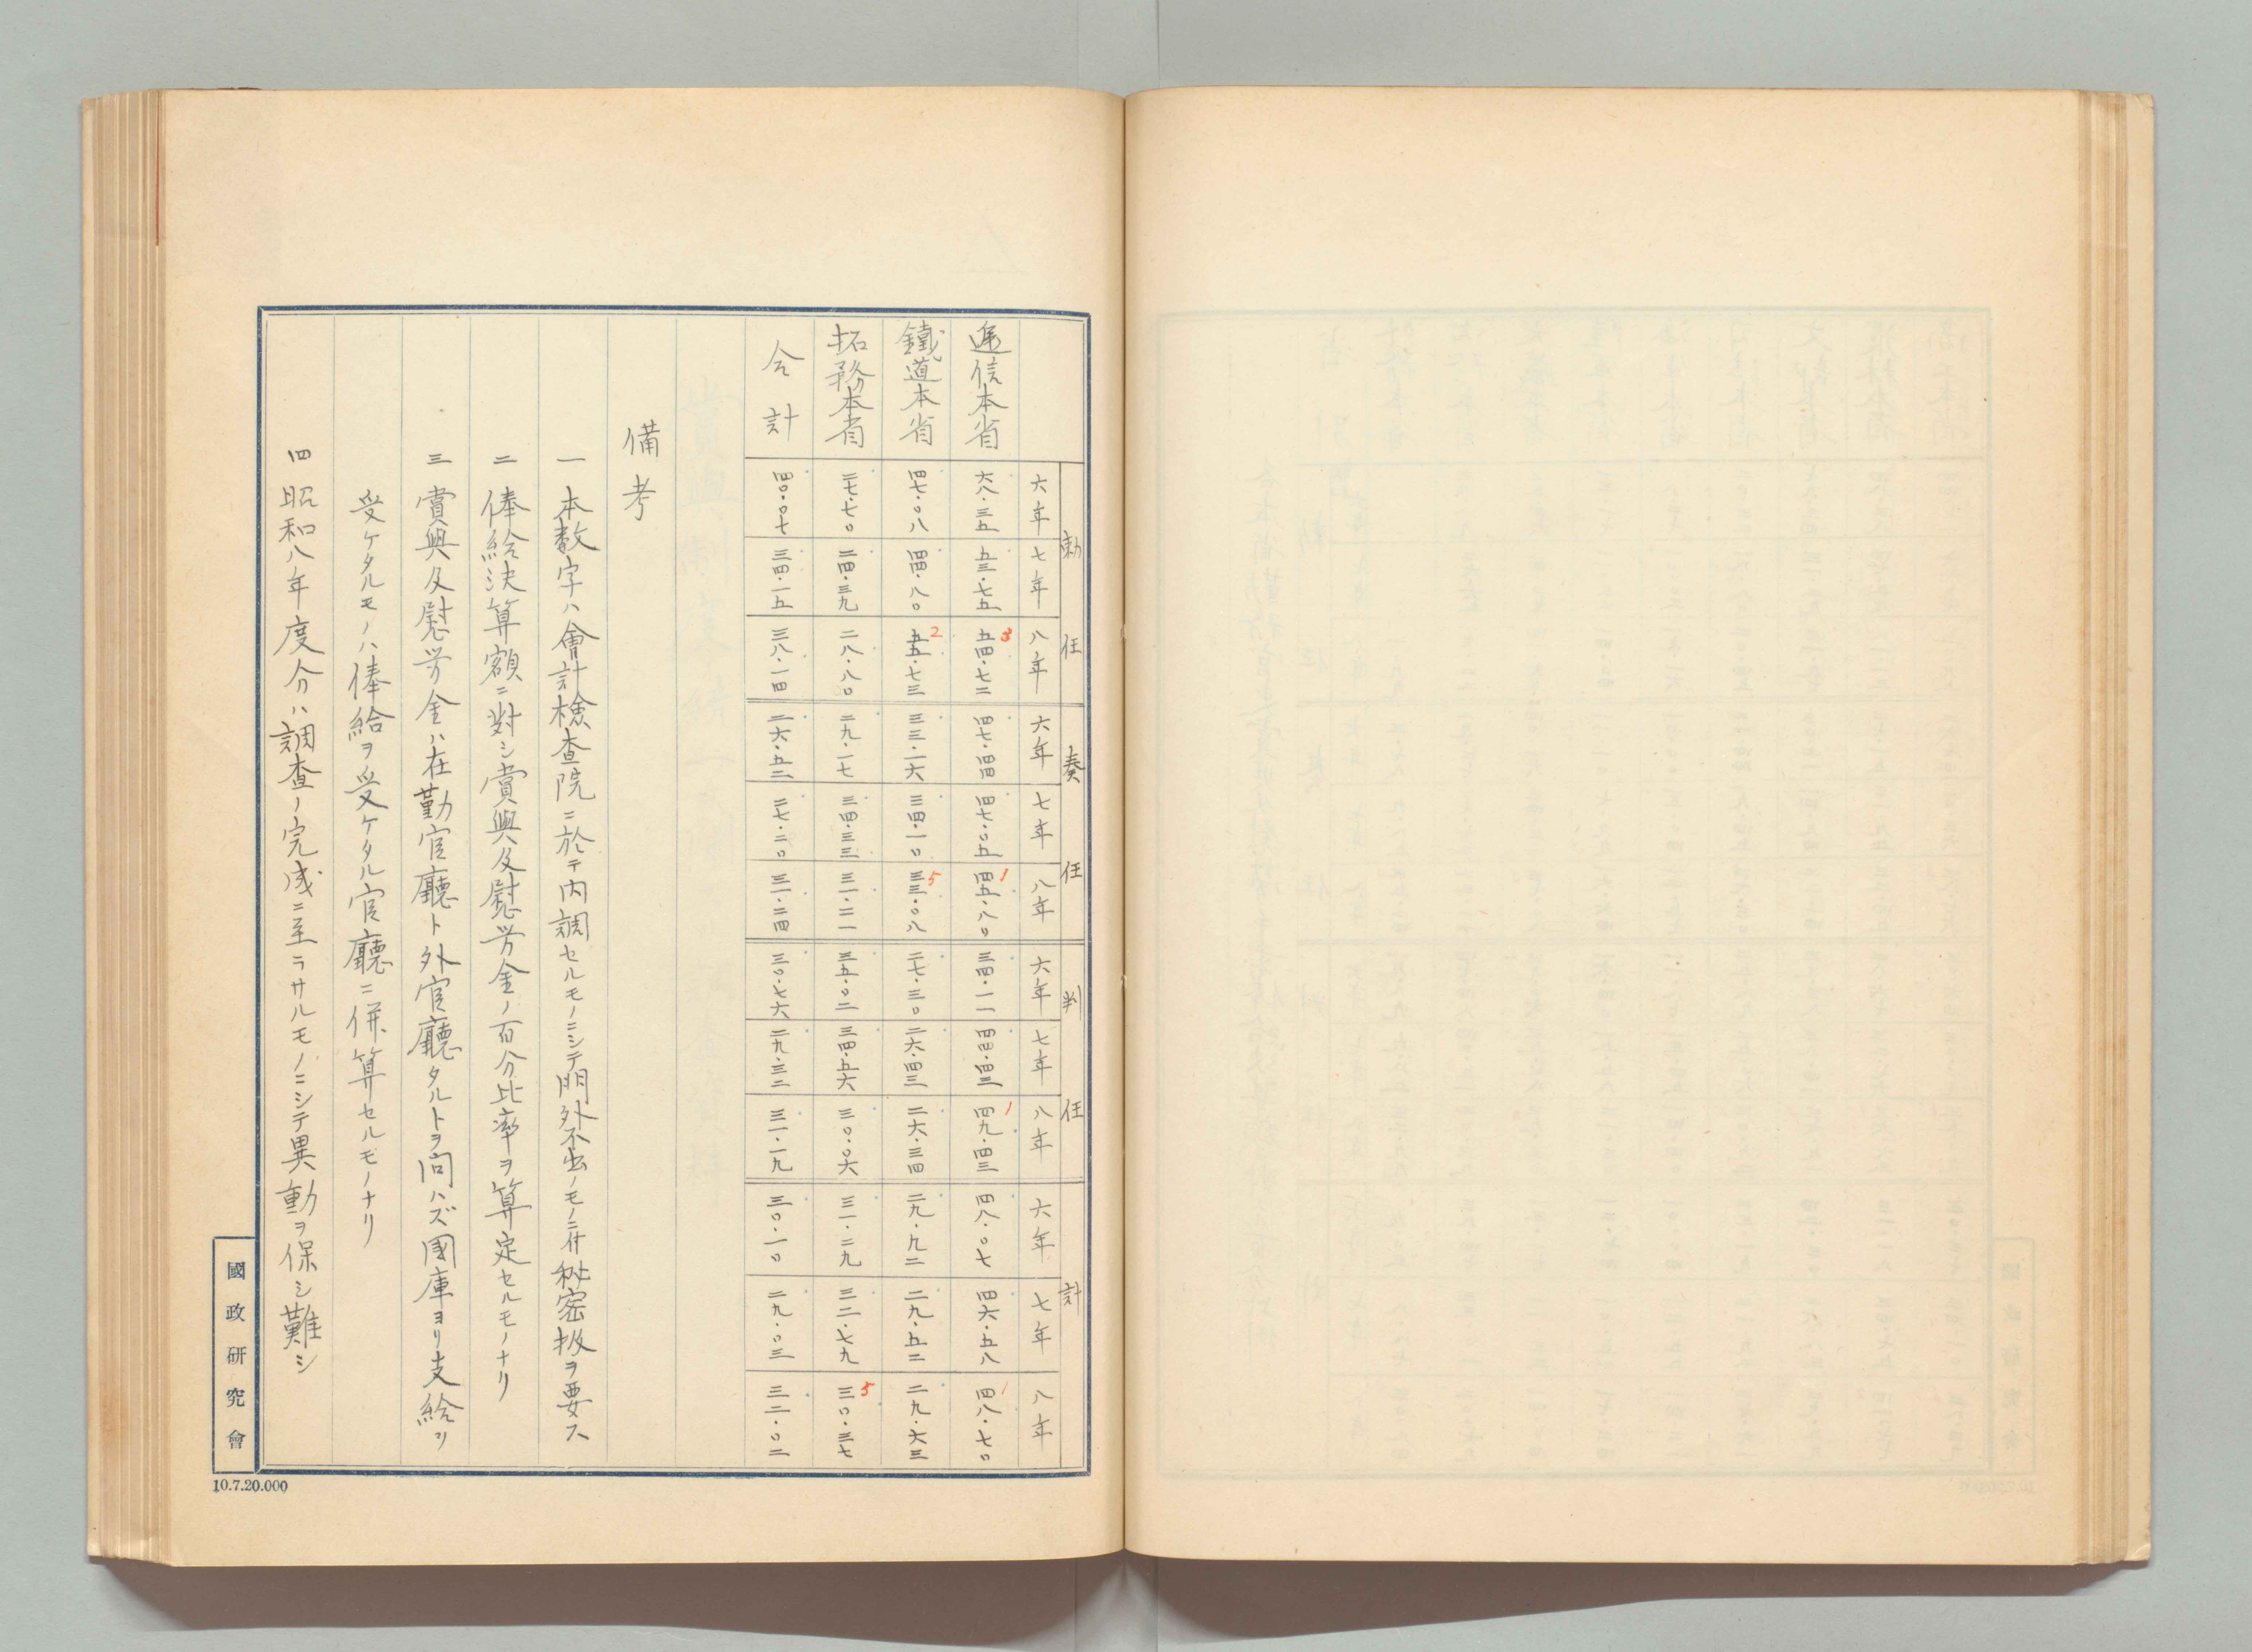 勅任 奏任 判任 計
六年 七年 八年 六年 七年 八年 六年 七年 八年 六年 七年 八年
逓信本省 六八・三五 五三・七五 五四・七二 3 四七・四四 四七・〇五 四五・八〇 1 三四・一一 四四・四三 四九・四三 1 四八・〇七 四六・五八 四八・七〇 1
鐵道本省 四七・〇八 四四・八〇 五五・七三 2 三三・二六 三四・一〇 三三・〇八 5 二七・三〇 二六・四三 二六・三四 二九・九二 二九・五二 二九・六三
拓務本省 二七・七〇 二四・三九 二八・八〇 二九・一七 三四・三三 三一・二一 三五・〇二 三四・五六 三〇・〇六 三一・二九 三二・七九 三〇・三七 5
合計 四〇・〇七 三四・一五 三八・一四 二六・五二 二七・二〇 三一・二四 三〇・七六 二九・三二 三一・一九 三〇・一〇 二九・〇三 三二・〇二
備考
一 本数字ハ會計檢査院ニ於テ内調セルモノニシテ門外不出ノモノニ付秘密扱ヲ要ス
二 俸給決算額ニ對シ賞與及慰労金ノ百分比率ヲ算定セルモノナリ
三 賞與及慰労金ハ在勤官廳ト外官廳タルトヲ問ハズ國庫ヨリ支給ヲ
受ケタルモノハ俸給ヲ受ケタル官廳ニ併算セルモノナリ
四 昭和八年度分ハ調査ノ完成ニ至ラサルモノニシテ異動ヲ保シ難シ
國政研究會
10.7.20.000